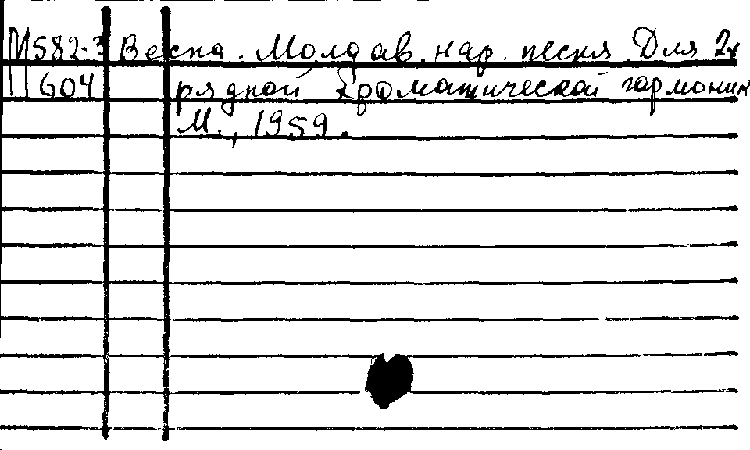 М582-3 Весна. Молдав. нар. песня Для 2х
П604 рядной хроматической гармоник
М., 1959.